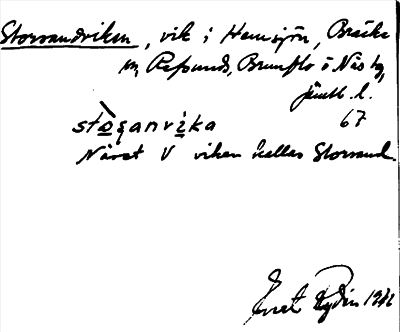 Storsandviken, vik i Hemsjön, Bräcke
sn, Refsunds, Brunflo o Näs tg,
jämtl. l.
67
stòṣanvìka
Näset V viken kallas Storsand.
Evert Rydin 1942